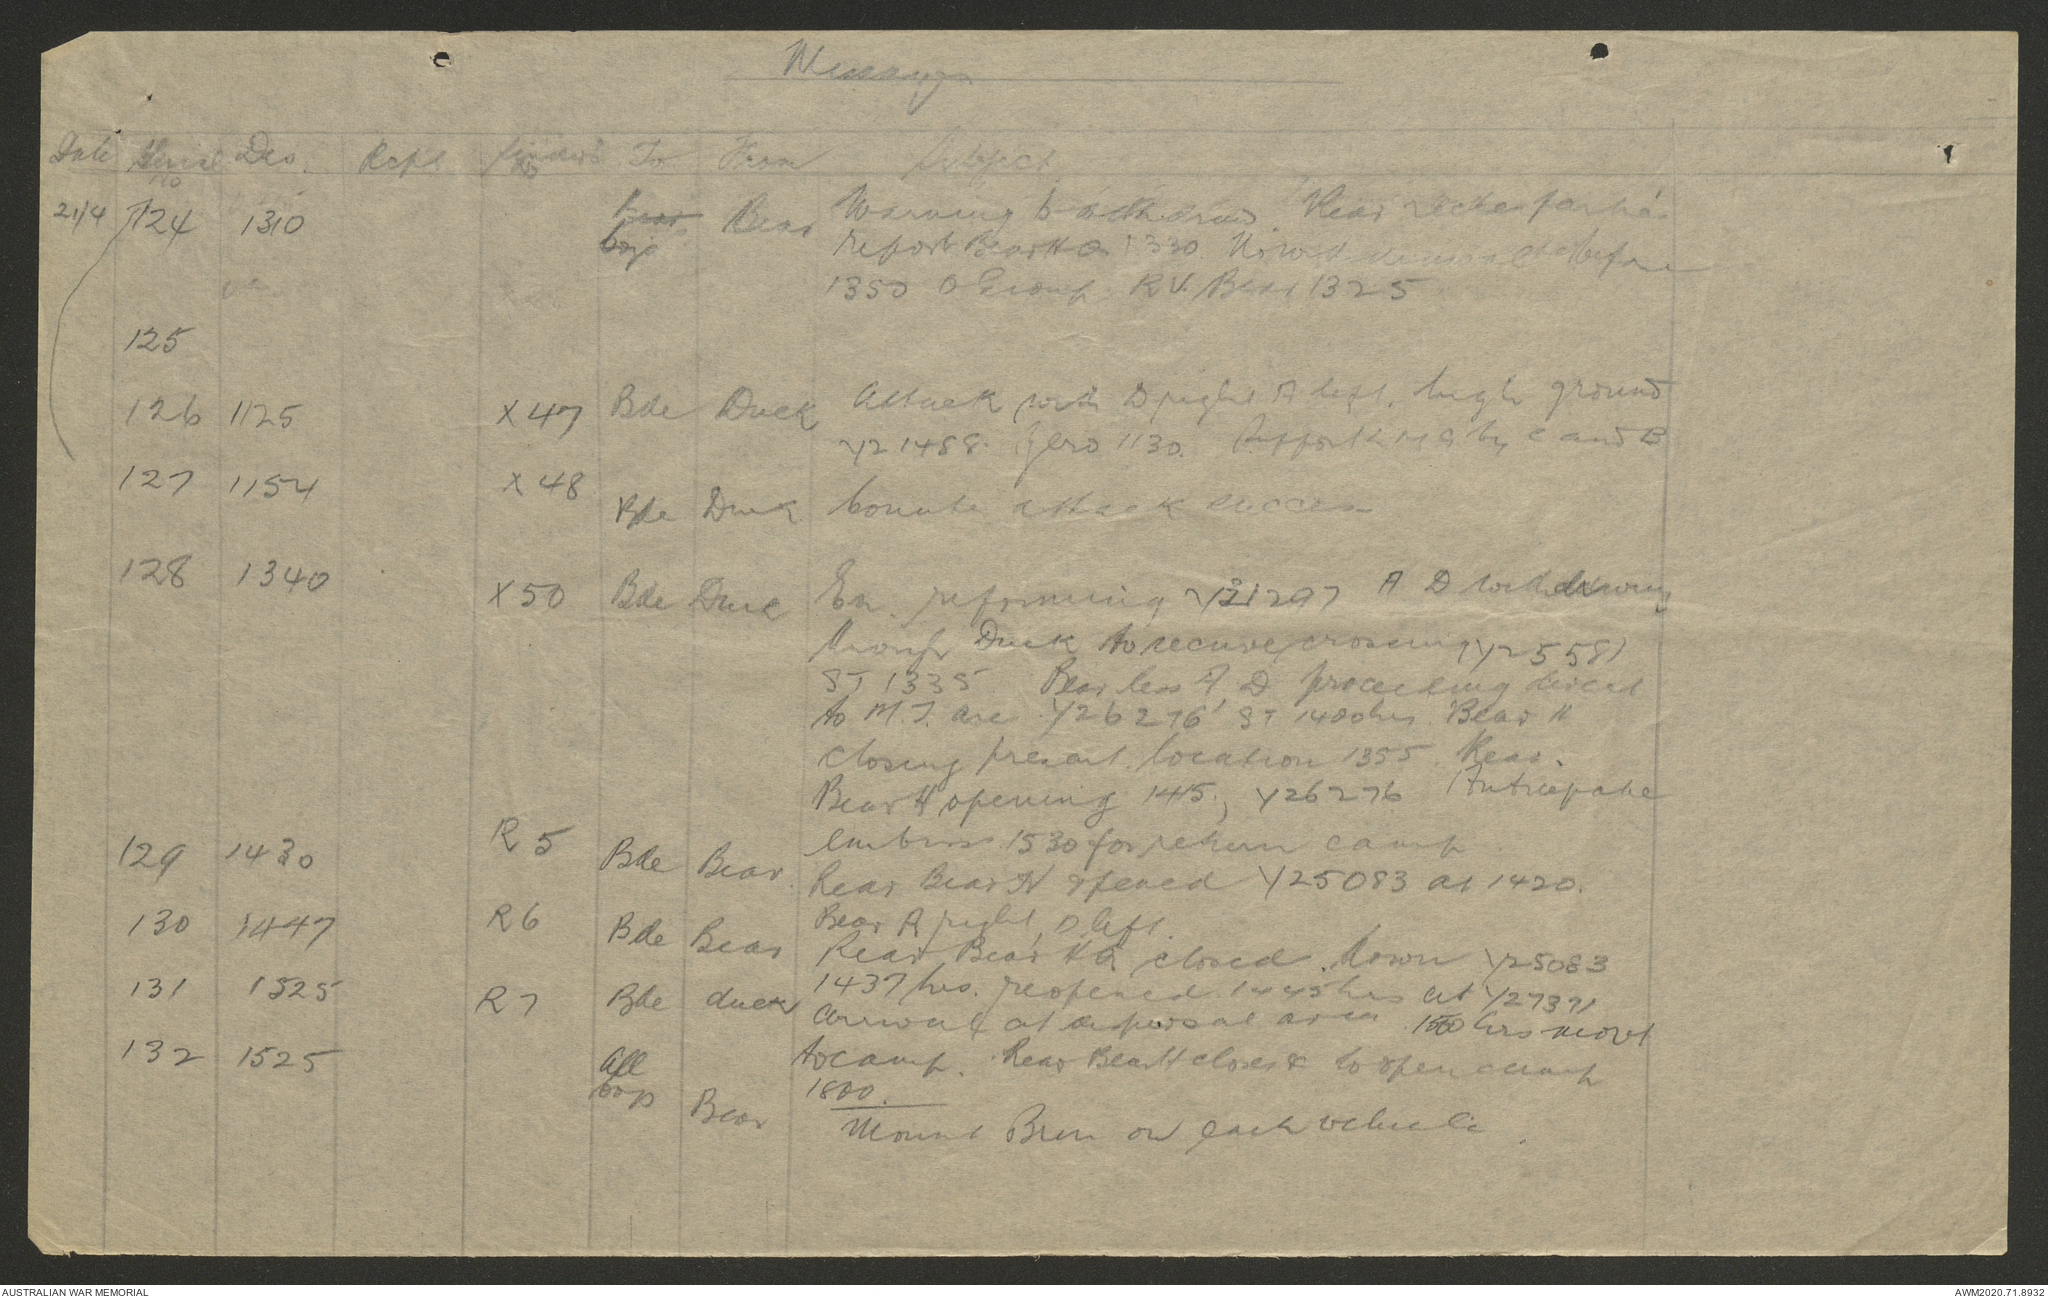 Messages
Date Serial No Des. Rept Senders No To From Subject
21/4 124 1310 Coys Bear Warning to withdraw Rear recke parties
report Bear HQ 1330. No withdrawal before
1350 O Group R.V. Bear 1325
125
126 1125 X47 Bde Duck Attack with D right A left. high ground
Y21488. Zero 1130. Support M G by C and B
127 1154 X48 Bde Duck attack success
128 1340 X50 Bde Duck En. reforming A D withdrawing
through Duck to secure crossing Y25581
ST 1335. Bear less A, D proceeding direct
to M.T. area Y26276 ST 1400hrs. Bear H
closing present location 1355. Rear
Bear H opening 1415, Y26276 Anticipate
embus 1530 for return camp.
129 1430 R5 Bde Bear Rear Bear H opened Y25083 at 1420.
Bear A right, D left.
130 1447 R6 Bde Bear Rear Bear HQ closed down Y25083
1437 hrs. reopened 1445hrs at Y27371
131 1525 R7 Bde duck Arrival at dispersal area hrs move
to camp. Rear Bear H closes & to open camp
1800.
132 1525 All Coys Bear Mount Bren on each vehicle.
AUSTRALIAN WAR MEMORIAL
AWM2020.71.8932